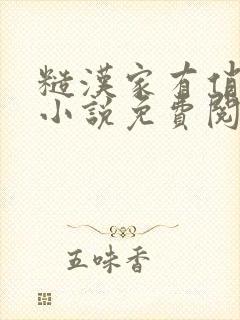 糙漢家有俏
小說免費閱
五味香